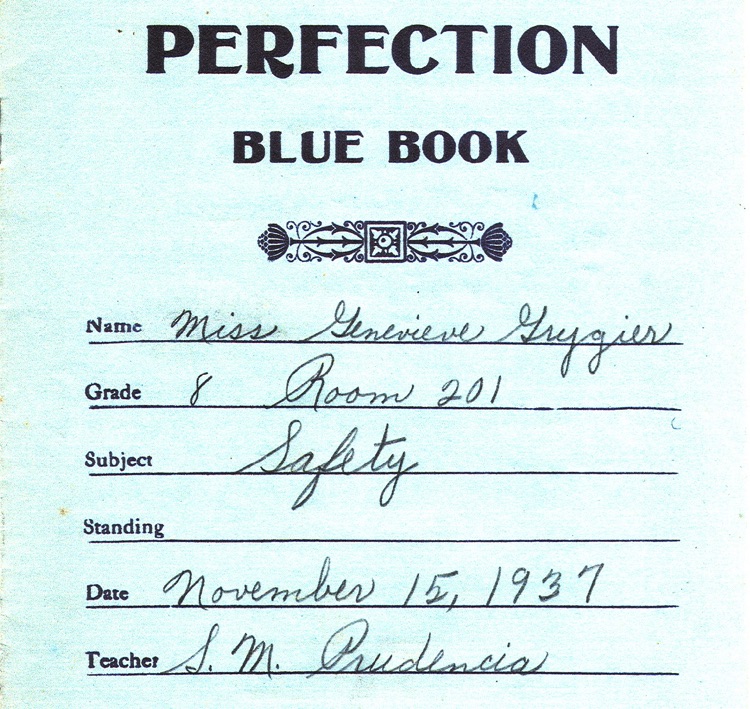 PERFECTION
BLUE BOOK
Name Miss Genevieve Grygier
Grade 8 Room 201
Subject Safety
Standing
Date November 15, 1937
Teacher S. M. Prudencia